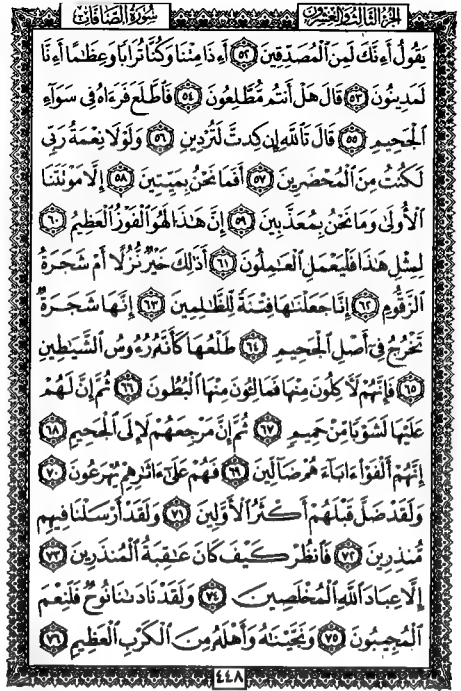 الجزء الثالث والعشرون
سورة الصافات
يَقُولُ أَءِنَّكَ لَمِنَ الْمُصَدِّقِينَ ٥٢ أَءِذَا مِتْنَا وَكُنَّا تُرَابًا وَعِظَٰمًا أَءِنَّا
لَمَدِينُونَ ٥٣ قَالَ هَلْ أَنتُم مُّطَّلِعُونَ ٥٤ فَاطَّلَعَ فَرَءَاهُ فِي سَوَآءِ
الْجَحِيمِ ٥٥ قَالَ تَاللَّهِ إِن كِدتَّ لَتُرْدِينِ ٥٦ وَلَوْلَا نِعْمَةُ رَبِّي
لَكُنتُ مِنَ الْمُحْضَرِينَ ٥٧ أَفَمَا نَحْنُ بِمَيِّتِينَ ٥٨ إِلَّا مَوْتَتَنَا
الْأُولَىٰ وَمَا نَحْنُ بِمُعَذَّبِينَ ٥٩ إِنَّ هَٰذَا لَهُوَ الْفَوْزُ الْعَظِيمُ ٦٠
لِمِثْلِ هَٰذَا فَلْيَعْمَلِ الْعَٰمِلُونَ ٦١ أَذَٰلِكَ خَيْرٌ نُّزُلًا أَمْ شَجَرَةُ
الزَّقُّومِ ٦٢ إِنَّا جَعَلْنَٰهَا فِتْنَةً لِّلظَّٰلِمِينَ ٦٣ إِنَّهَا شَجَرَةٌ
تَخْرُجُ فِي أَصْلِ الْجَحِيمِ ٦٤ طَلْعُهَا كَأَنَّهُ رُءُوسُ الشَّيَٰطِينِ
٦٥ فَإِنَّهُمْ لَءَاكِلُونَ مِنْهَا فَمَالِـُٔونَ مِنْهَا الْبُطُونَ ٦٦ ثُمَّ إِنَّ لَهُمْ
عَلَيْهَا لَشَوْبًا مِّنْ حَمِيمٍ ٦٧ ثُمَّ إِنَّ مَرْجِعَهُمْ لَإِلَى الْجَحِيمِ ٦٨
إِنَّهُمْ أَلْفَوْا ءَابَآءَهُمْ ضَآلِّينَ ٦٩ فَهُمْ عَلَىٰ ءَاثَٰرِهِمْ يُهْرَعُونَ ٧٠
وَلَقَدْ ضَلَّ قَبْلَهُمْ أَكْثَرُ الْأَوَّلِينَ ٧١ وَلَقَدْ أَرْسَلْنَا فِيهِم
مُّنذِرِينَ ٧٢ فَانظُرْ كَيْفَ كَانَ عَٰقِبَةُ الْمُنذَرِينَ ٧٣
إِلَّا عِبَادَ اللَّهِ الْمُخْلَصِينَ ٧٤ وَلَقَدْ نَادَىٰنَا نُوحٌ فَلَنِعْمَ
الْمُجِيبُونَ ٧٥ وَنَجَّيْنَٰهُ وَأَهْلَهُ مِنَ الْكَرْبِ الْعَظِيمِ ٧٦
٤٤٨